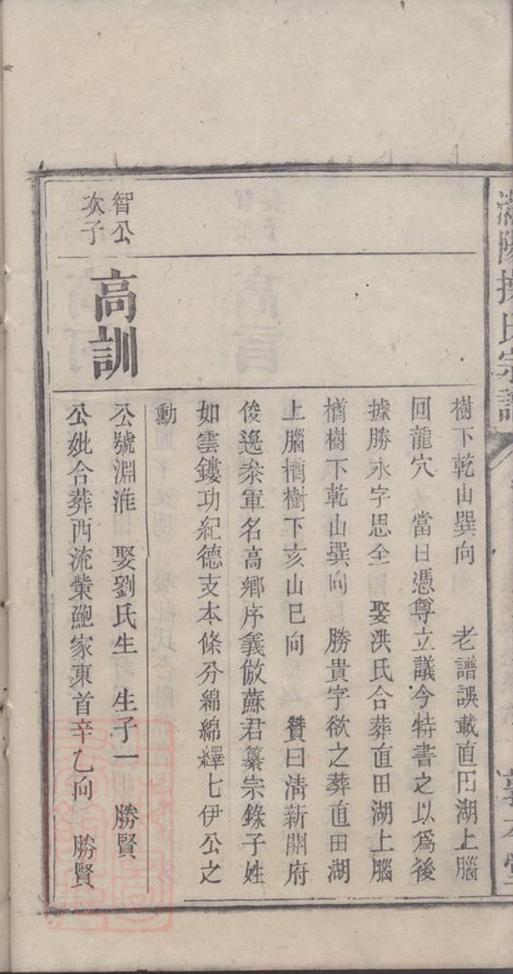 樹下乾山巽向　老譜誤載直田湖上腦
回龍穴　當日憑尊立議今特書之以爲後
據勝永字思全　娶洪氏合葬直田湖上腦
樹下乾山巽向　勝貴字欲之葬直田湖
上腦樹下亥山巳向　贊曰清新開府
俊逸參軍名高鄉序義倣蘇君纂宗錄子姓
如雲鏤功紀德支本條分綿綿繹七伊公之
勳
智公
次子
高訓
公號淵淮　娶劉氏生　生子一　勝賢
公妣合葬西流業鮑家東首辛乙向　勝賢